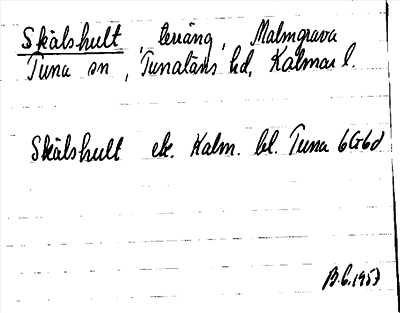 Skälshult, terräng, Malmgrava
Tuna sn, Tunaläns hd, Kalmar l.
Skälshult ek. Kalm. bl. Tuna 6G6d
B.C. 1953